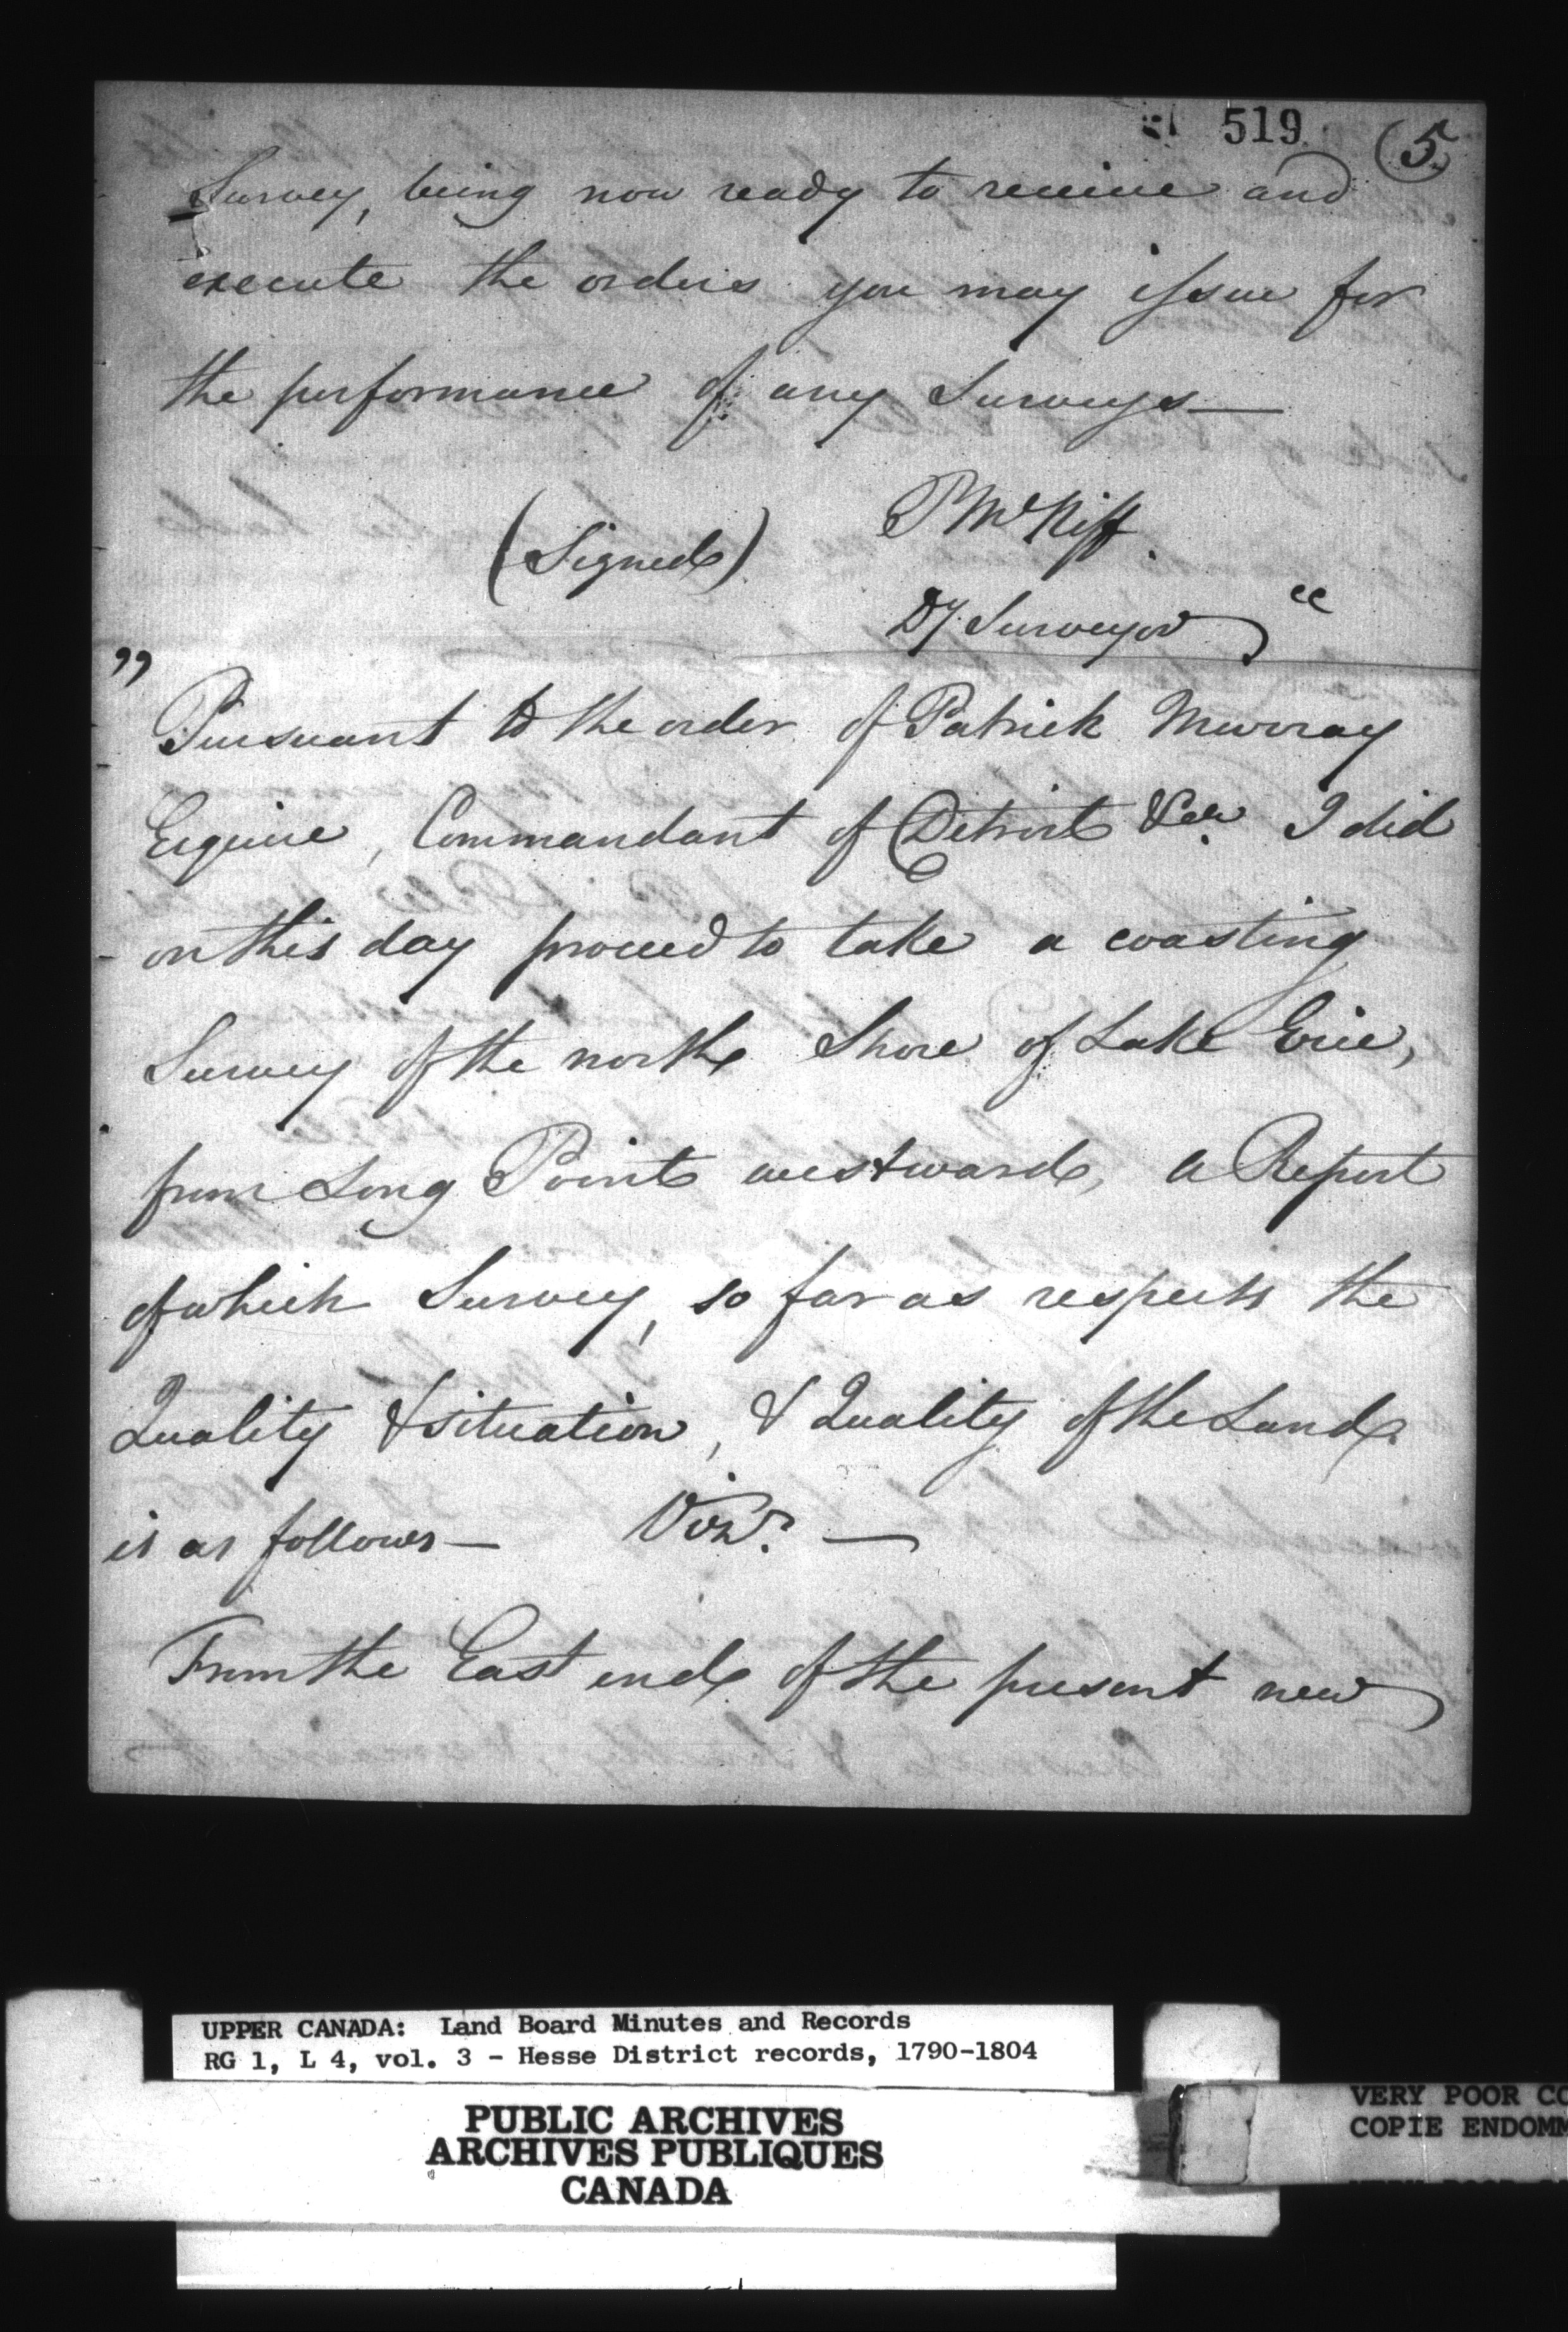 519 (5)
Survey, being now ready to receive and
execute the orders you may issue for
the performance of any Surveys—
P McNiff.
(Signed)
Dy. Surveyor "
" Pursuant to the order of Patrick Murray
Esquire, Commandant of Detroit &ca. I did
on this day proceed to take a coasting
Survey of the north Shore of Lake Erie,
from Long Point westward, a Report
of which Survey, so far as respects the
Quality & situation, & Quality of the Land
is as follows— Vizt. —
From the East end of the present new
UPPER CANADA: Land Board Minutes and Records
RG 1, L 4, vol. 3 - Hesse District records, 1790-1804
PUBLIC ARCHIVES
ARCHIVES PUBLIQUES
CANADA
VERY POOR CO
COPIE ENDOMM